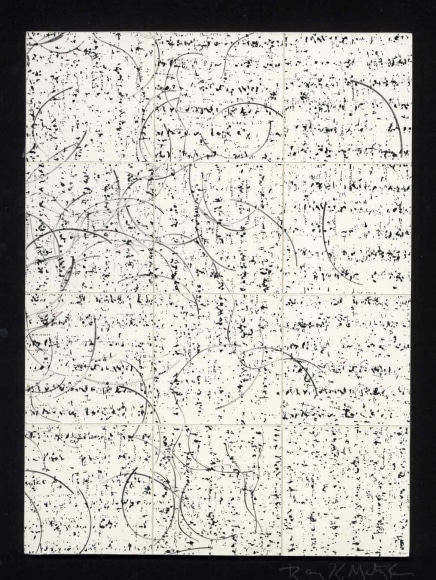 Ray K Metzker